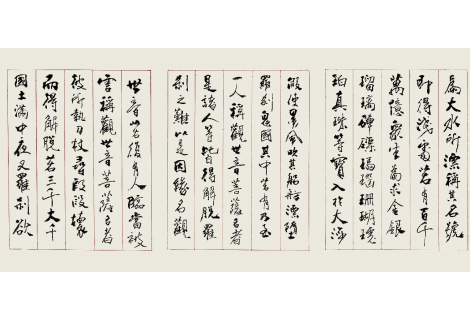 為大水所漂稱其名號
即得淺處若有百千
萬億眾生為求金銀
瑠璃硨磲瑪瑙珊瑚琥
珀真珠等寶入於大海
假使黑風吹其船舫漂墮
羅剎鬼國其中若有乃至
一人稱觀世音菩薩名者
是諸人等皆得解脫羅
剎之難以是因緣名觀
世音若復有人臨當被
害稱觀世音菩薩名者
彼所執刀杖尋段段壞
而得解脫若三千大千
國土滿中夜叉羅剎欲